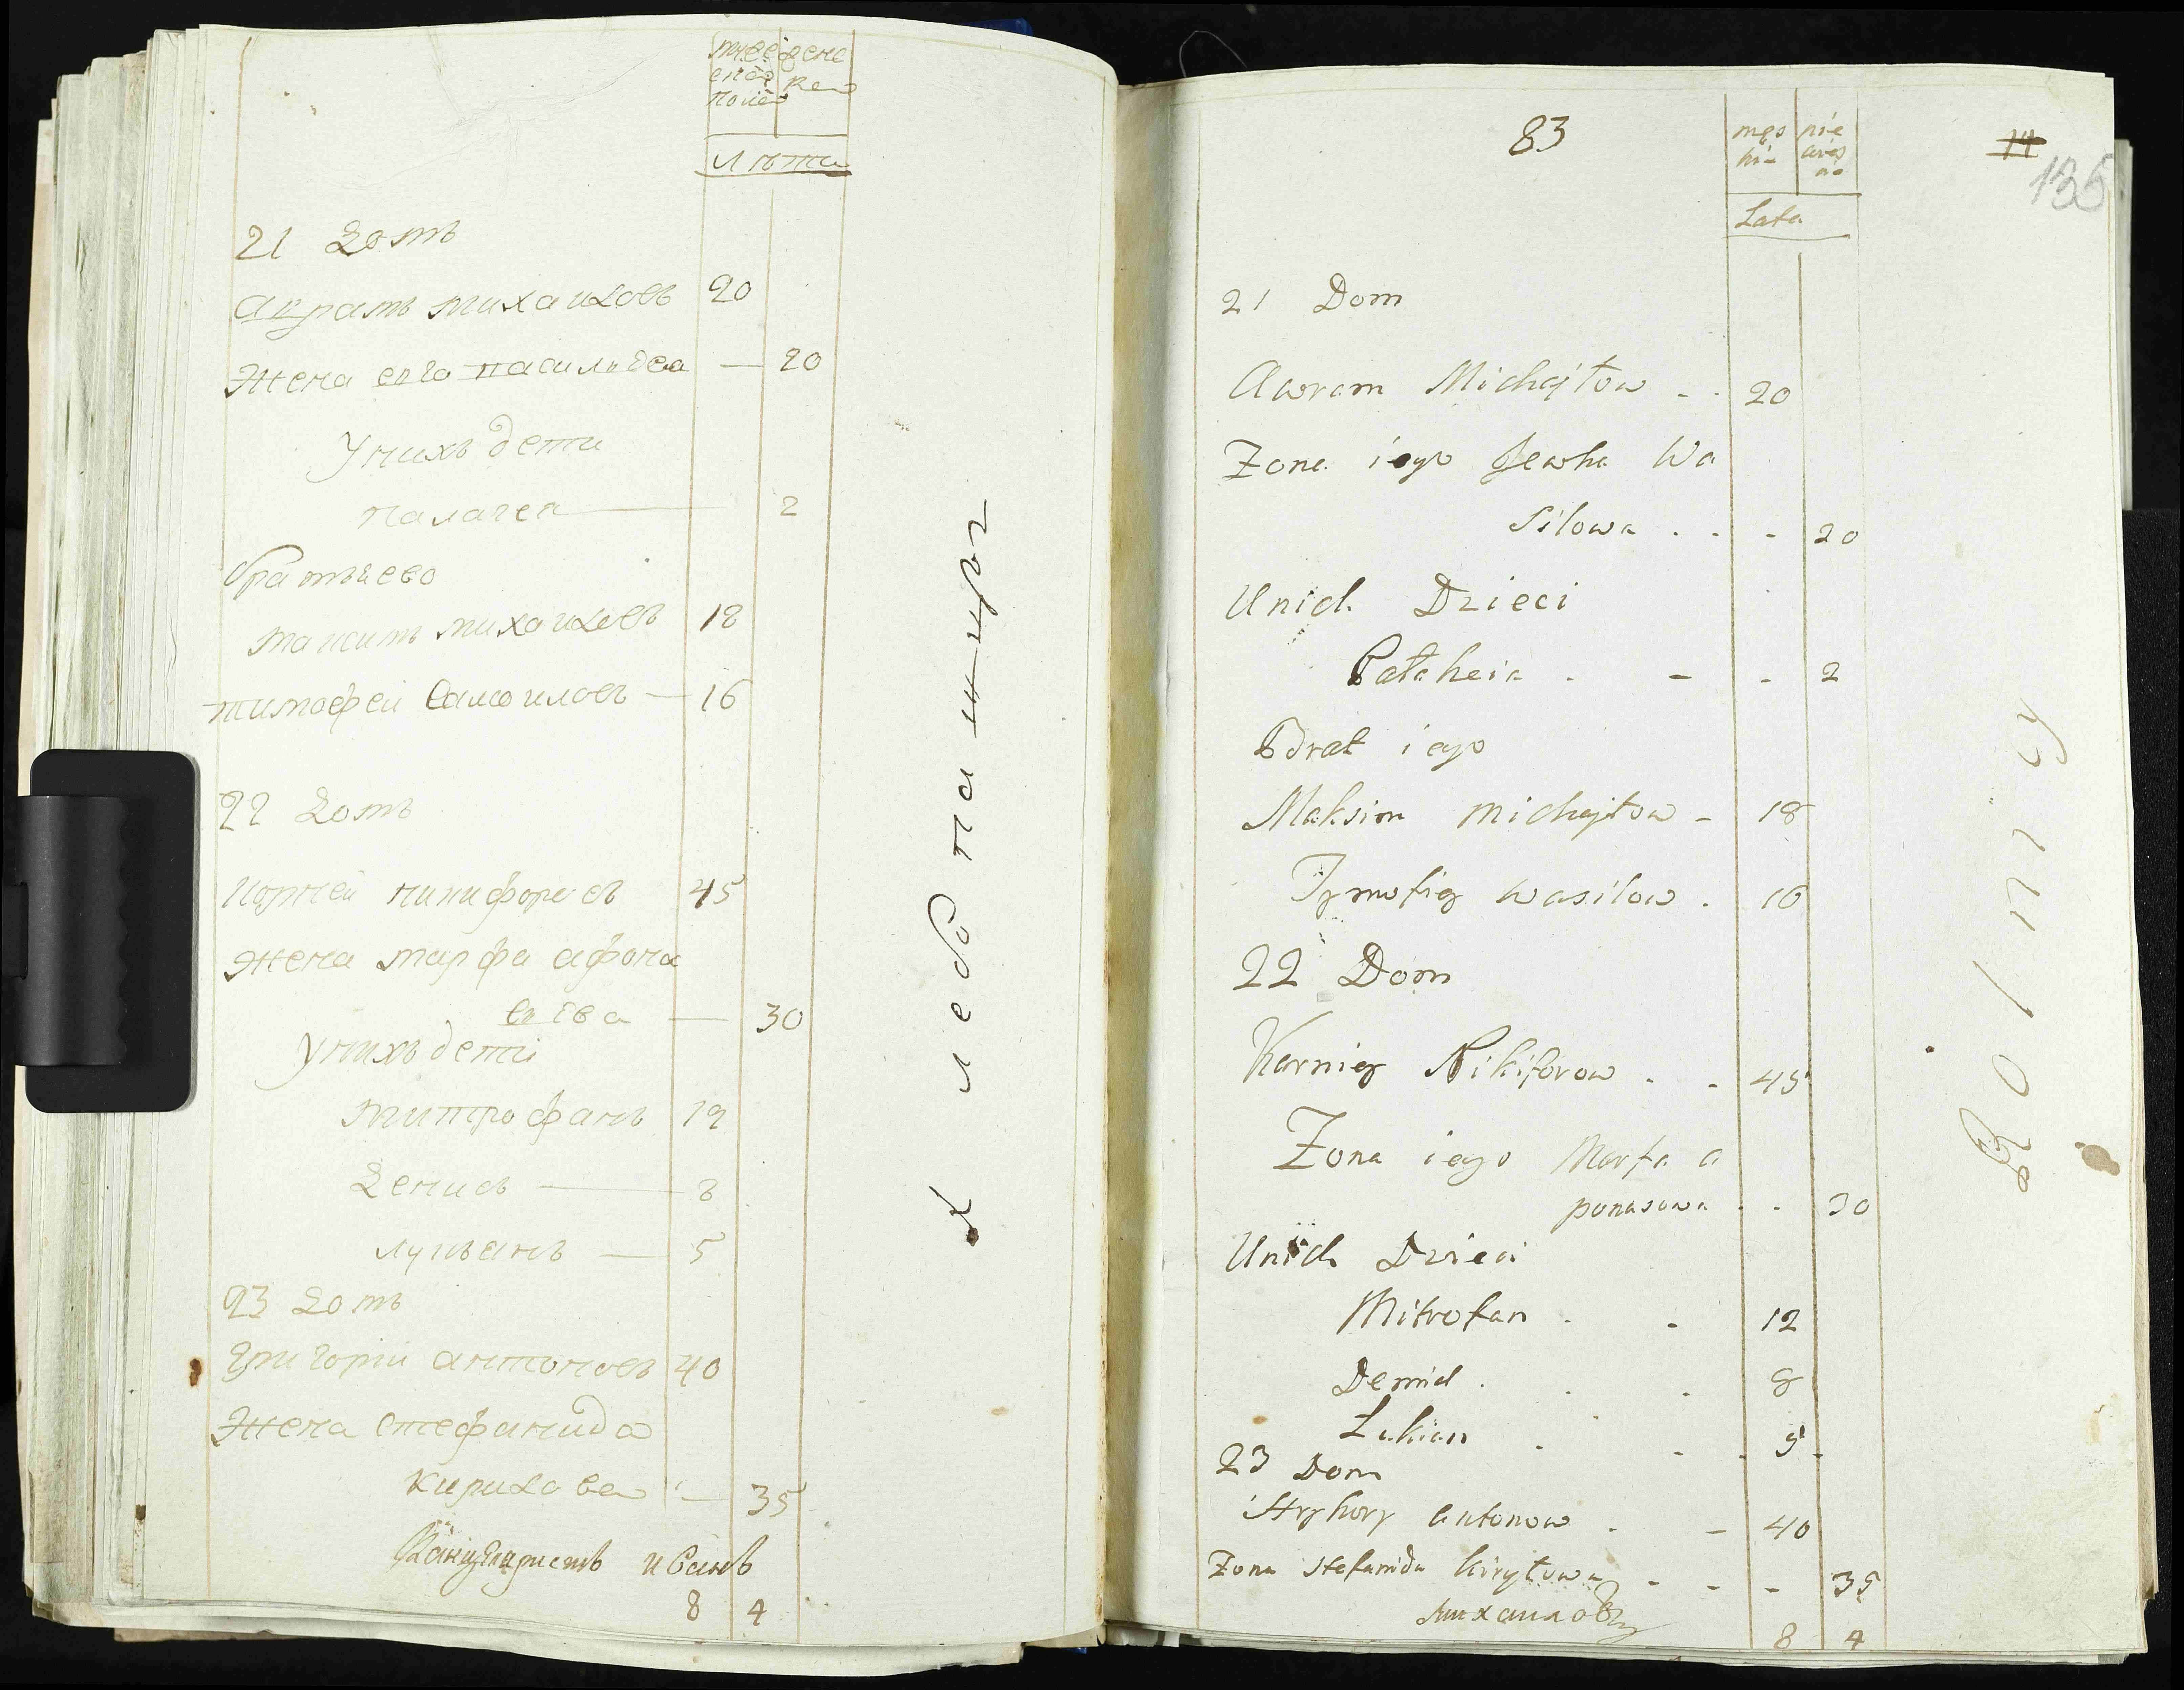 мужеска полу
женска
Лѣта
21 Домъ
Аврамъ Михаиловъ 20
Жена его Васильева — 20
У нихъ дети
Палагея — 2
братья ево
Максимъ Михаиловъ 18
Тимофей Василовъ — 16
22 Домъ
Корней Никифоровъ 45
Жена Марфа Афона
сьева — 30
У нихъ дети
Митрофанъ 12
Денисъ — 8
Лукьянъ — 5
23 Домъ
Григорій Антоновъ 40
Жена Стефанида
Кирилова — 35
Канцеляристъ Иванъ
8 4
Хлебопашцы
83
męs
ki-
nie
wieś
cia
14
135
Lata
21 Dom
Awram Michajłow - . 20
Zona iego Jewha Wa
silowa . . - 20
Unich Dzieci
Pałaheia . - - 2
Brat iego
Maksim Michajłow - 18
Tymofiey Wasilow . 16
22 Dom
Karniey Nikiforow . . 45
Zona iego Marfa A
ponasowa . . 30
Unich Dzieci
Mitrofan . . 12
Demid . . . 8
Łukian . . . 5
23 Dom
Hryhory Antonow . - 40
Zona Stefanida Kiryłowa - - - 35
Михаиловъ
8 4
Rolnicy